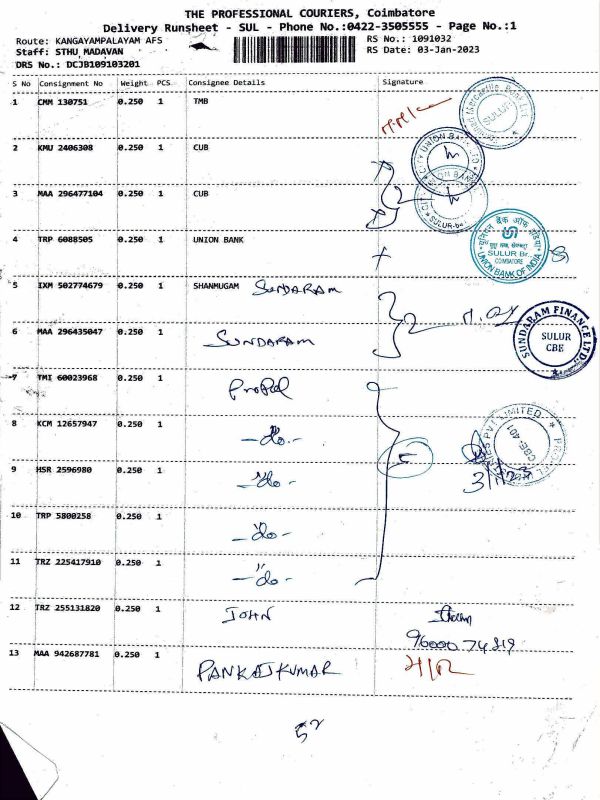 THE PROFESSIONAL COURIERS, Coimbatore
Delivery Runsheet - SUL - Phone No.:0422-3505555 - Page No.:1
Route: KANGAYAMPALAYAM AFS RS No.: 1091032
Staff: STHU_MADAVAN RS Date: 03-Jan-2023
DRS No.: DCJB109103201
S No Consignment No Weight PCS Consignee Details Signature
1 CMM 130751 0.250 1 TMB
SULUR
2 KMU 2406308 0.250 1 CUB
CITY UNION BANK LTD
3 MAA 296477104 0.250 1 CUB
SULUR
4 TRP 6088505 0.250 1 UNION BANK
यूनियन बैंक ऑफ इंडिया
SULUR Br.,
COIMBATORE
UNION BANK OF INDIA
5 IXM 502774679 0.250 1 SHANMUGAM SUNDARAM
6 MAA 296435047 0.250 1 SUNDARAM
SUNDARAM FINANCE LTD.
SULUR
CBE
7 TMI 60023968 0.250 1 Propel
8 KCM 12657947 0.250 1 -do-
PVT LIMITED
CBE-401
9 HSR 2596980 0.250 1 -do-
3/1/23
10 TRP 5800258 0.250 1 -do-
11 TRZ 225417910 0.250 1 -do-
12 TRZ 255131820 0.250 1 JOHN
13 MAA 942687781 0.250 1 PANKAJ KUMAR